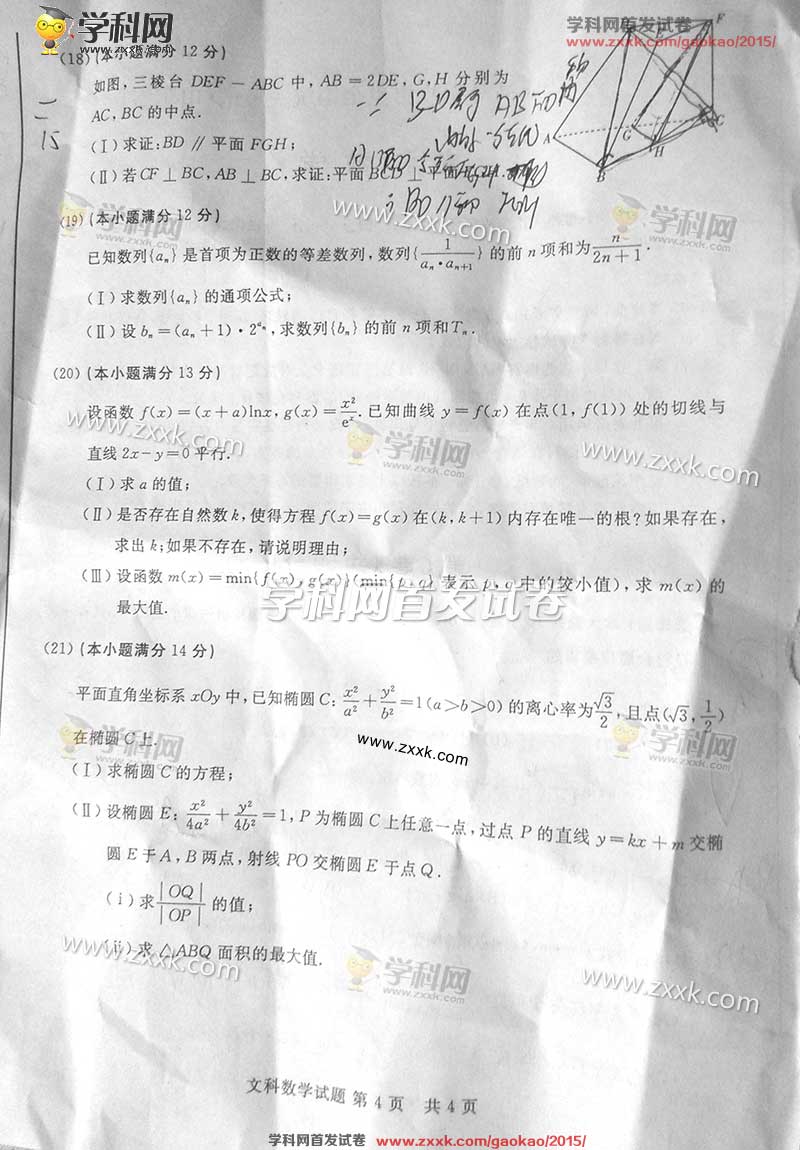 学科网
www.zxxk.com
学科网首发试卷
www.zxxk.com/gaokao/2015/
(18)(本小题满分 12 分)
如图,三棱台 DEF-ABC 中, AB=2DE, G, H 分别为
AC, BC 的中点.
(Ⅰ)求证:BD∥平面 FGH;
(Ⅱ)若 CF⊥BC, AB⊥BC, 求证:平面 BCD⊥平面
F
A
G
C
B
H
二
15
(19)(本小题满分 12 分)
已知数列{aₙ}是首项为正数的等差数列,数列{1/(aₙ·aₙ₊₁)}的前 n 项和为 n/(2n+1).
(Ⅰ)求数列{aₙ}的通项公式;
(Ⅱ)设 bₙ=(aₙ+1)·2^aₙ,求数列{bₙ}的前 n 项和 Tₙ.
学科网
www.zxxk.com
学科网
www.zxxk.com
(20)(本小题满分 13 分)
设函数 f(x)=(x+a)lnx, g(x)=x²/eˣ. 已知曲线 y=f(x) 在点(1, f(1)) 处的切线与
直线 2x-y=0 平行.
www.zxxk.com
学科网
www.zxxk.com
(Ⅰ)求 a 的值;
(Ⅱ)是否存在自然数 k,使得方程 f(x)=g(x)在(k, k+1)内存在唯一的根?如果存在,
求出 k;如果不存在,请说明理由;
(Ⅲ)设函数 m(x)=min{f(x), g(x)}(min{p, q}表示 p, q 中的较小值),求 m(x) 的
最大值.
学科网首发试卷
(21)(本小题满分 14 分)
平面直角坐标系 xOy 中,已知椭圆 C: x²/a²+y²/b²=1(a>b>0)的离心率为 √3/2,且点(√3, 1/2)
在椭圆 C 上.
学科网
www.zxxk.com
学科网
(Ⅰ)求椭圆 C 的方程;
(Ⅱ)设椭圆 E: x²/4a²+y²/4b²=1, P 为椭圆 C 上任意一点,过点 P 的直线 y=kx+m 交椭
圆 E 于 A, B 两点,射线 PO 交椭圆 E 于点 Q.
(ⅰ)求 |OQ|/|OP| 的值;
(ⅱ)求 △ABQ 面积的最大值.
www.zxxk.com
学科网
www.zxxk.com
文科数学试题 第 4 页 共 4 页
学科网首发试卷 www.zxxk.com/gaokao/2015/